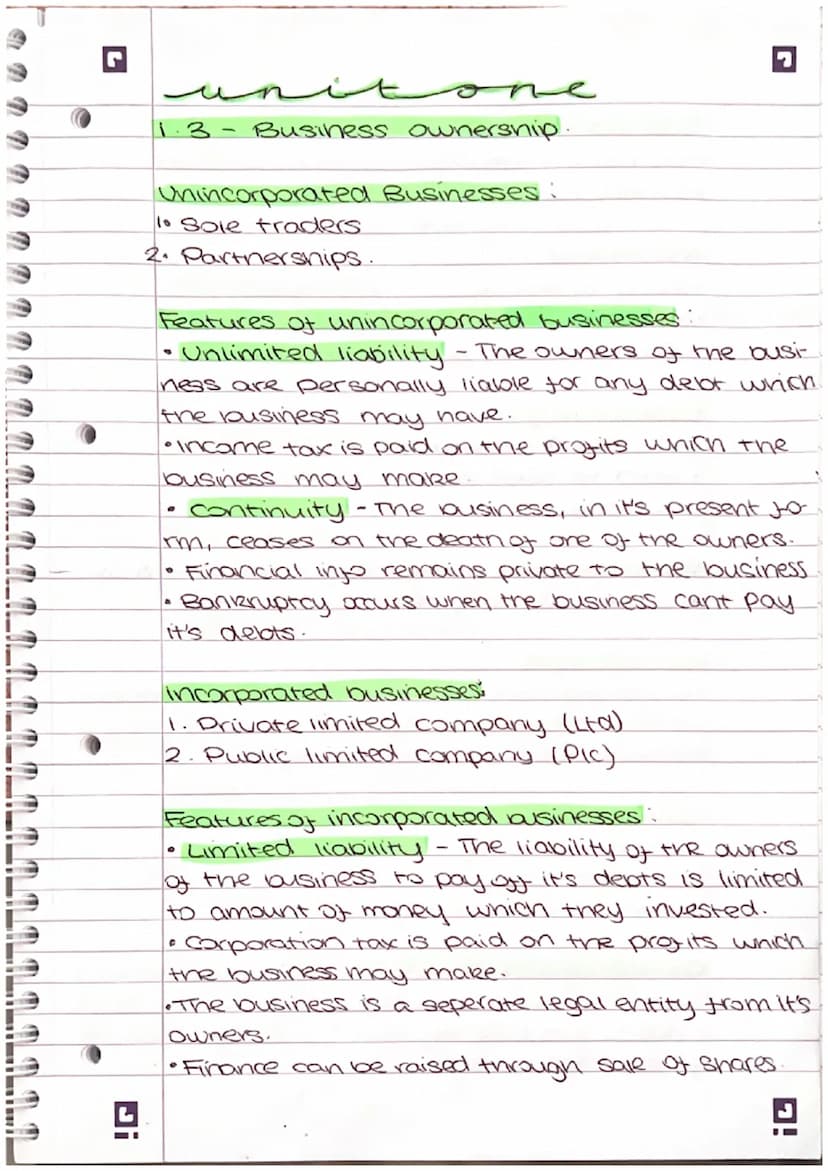 unit one
1.3 - Business ownership.
Unincorporated Businesses:
1. Sole traders
2. Partnerships.
Features of unincorporated businesses:
• Unlimited liability - The owners of the busi-
ness are personally liable for any debt which
the business may have.
• Income tax is paid on the profits which the
business may make.
• Continuity - The business, in it's present fo-
rm, ceases on the death of one of the owners.
• Financial info remains private to the business
• Bankruptcy occurs when the business cant pay
it's debts.
Incorporated businesses:
1. Private limited company (Ltd)
2. Public limited company (Plc)
Features of incorporated businesses:
• Limited liability - The liability of the owners
of the business to pay off it's debts is limited
to amount of money which they invested.
• Corporation tax is paid on the profits which
the business may make.
• The business is a seperate legal entity from it's
owners.
• Finance can be raised through sale of shares.